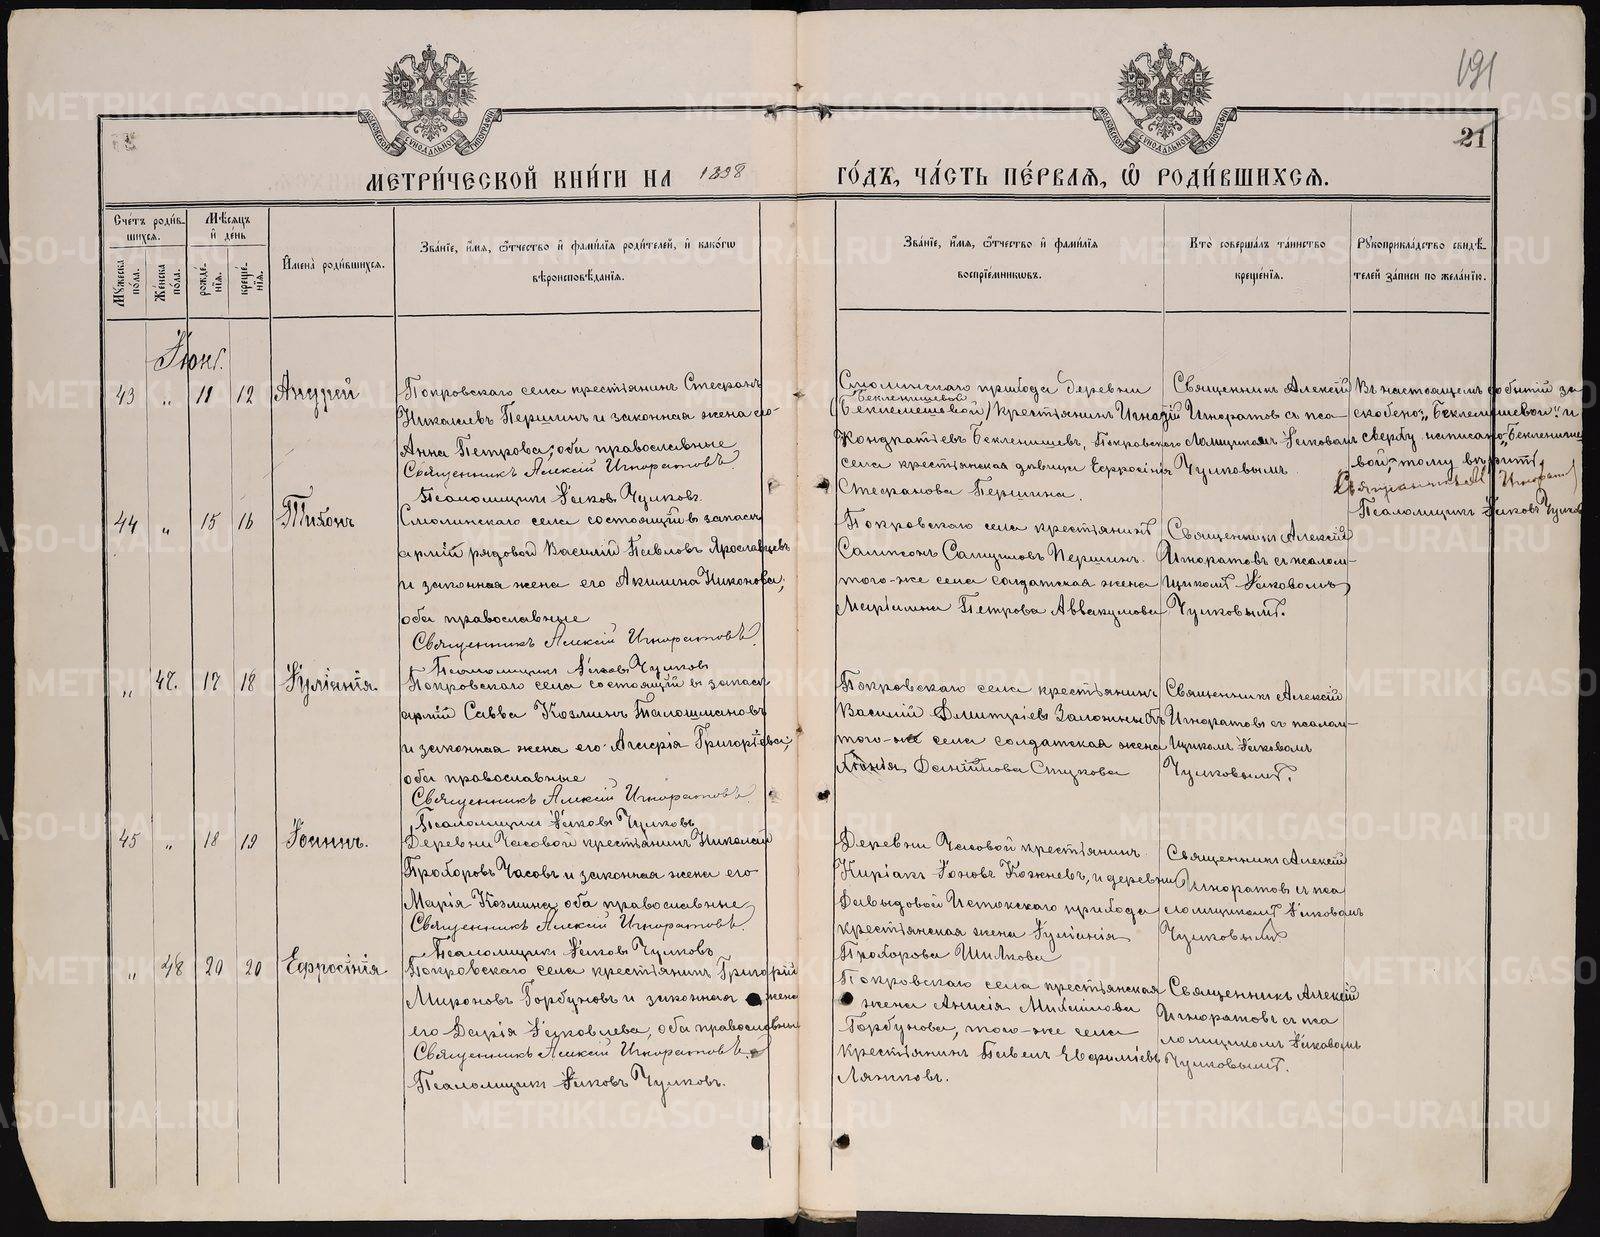 191
21
МОСКОВСКОЙ СѴНОДАЛЬНОЙ ТИПОГРАФІИ
МОСКОВСКОЙ СѴНОДАЛЬНОЙ ТИПОГРАФІИ
МЕТРИ́ЧЕСКОЙ КНИ́ГИ НА 1898 ГО́ДЪ, ЧА́СТЬ ПЕ́РВАѦ, Ѡ҆ РОДИ́ВШИХСѦ.
Сче́тъ роди́в-
шихсѧ.
Мꙋ́жеска по́ла.
Же́нска по́ла.
Мѣ́сѧцъ
и҆ де́нь
рожде́-нїѧ.
креще́-нїѧ.
И҆мена̀ роди́вшихсѧ.
Зва́нїе, и҆́мѧ, ѻ҆́тчество и҆ фами́лїѧ роди́телей, и҆ како́гѡ
вѣроисповѣ́данїѧ.
Зва́нїе, и҆́мѧ, ѻ҆́тчество и҆ фами́лїѧ
воспрїе́мникѡвъ.
Кто̀ соверша́лъ та́инство
креще́нїѧ.
Рꙋкоприкла́дство свидѣ́-
телей за́писи по жела́нїю.
Іюнь.
43 „ 11 12 Андрей
Покровскаго села крестьянинъ Стефанъ
Николаевъ Першинъ и законная жена его
Анна Петрова; оба православные
Священникъ Алексій Игноратовъ.
Псаломщикъ Іаковъ Чулковъ.
Смолинскаго прихода деревни
Бекленищевой
(Беклемешевой) крестьянинъ Игнатій
Кондратіевъ Бекленищевъ, Покровскаго
села крестьянская дѣвица Евфросінія
Стефанова Першина.
Священникъ Алексій
Игноратовъ съ пса-
ломщикомъ Іаковомъ
Чулковымъ.
Въ настоящемъ событіи за
скоблено: „Беклемешевой" и
сверху написано „Бекленище-
вой", тому вѣрить,
Священникъ Ал. Игноратовъ
Псаломщикъ Іаковъ Чулковъ
44 „ 15 16 Тихонъ
Смолинскаго села состоящій въ запасѣ
арміи рядовой Василій Павловъ Ярославцевъ
и законная жена его Акилина Никонова;
оба православные
Священникъ Алексій Игноратовъ.
Псаломщикъ Іаковъ Чулковъ
Покровскаго села крестьянинъ
Сампсонъ Першинъ.
того-же села солдатская жена
Маріамна Петрова Аввакумова
Священникъ Алексій
Игноратовъ съ псалом-
щикомъ Іаковомъ
Чулковымъ.
„ 47. 17 18 Іуліанія.
Покровскаго села состоящій въ запасѣ
арміи Савва Козминъ Талошмановъ
и законная жена его Григорьева;
оба православные
Священникъ Алексій Игноратовъ.
Псаломщикъ Іаковъ Чулковъ
Покровскаго села крестьянинъ
Василій Димитріевъ Заложныхъ
того-же села солдатская жена
Даніилова Стукова
Священникъ Алексій
Игноратовъ съ псалом-
щикомъ Іаковомъ
Чулковымъ.
45 „ 18 19 Іоаннъ.
Деревни Часовой крестьянинъ Николай
Прохоровъ Часовъ и законная жена его
Марія Козмина; оба православные
Священникъ Алексій Игноратовъ.
Псаломщикъ Іаковъ Чулковъ
Деревни Часовой крестьянинъ
Киріакъ Іоновъ и деревни
Давыдовой Истокскаго прихода
крестьянская жена Іуліанія
Прохорова
Священникъ Алексій
Игноратовъ съ пса
ломщикомъ Іаковомъ
Чулковымъ
„ 48 20 20 Евфросінія
Покровскаго села крестьянинъ Григорій
Мироновъ Горбуновъ и законная жена
его Дарія Іаковлева, оба православные
Священникъ Алексій Игноратовъ.
Псаломщикъ Іаковъ Чулковъ.
Покровскаго села крестьянская
жена Анисія Михаилова
Горбунова, того-же села
крестьянинъ Павелъ Евфиміевъ
Ляжковъ.
Священникъ Алексій
Игноратовъ съ пса
ломщикомъ Іаковомъ
Чулковымъ.
METRIKI.GASO-URAL.RU